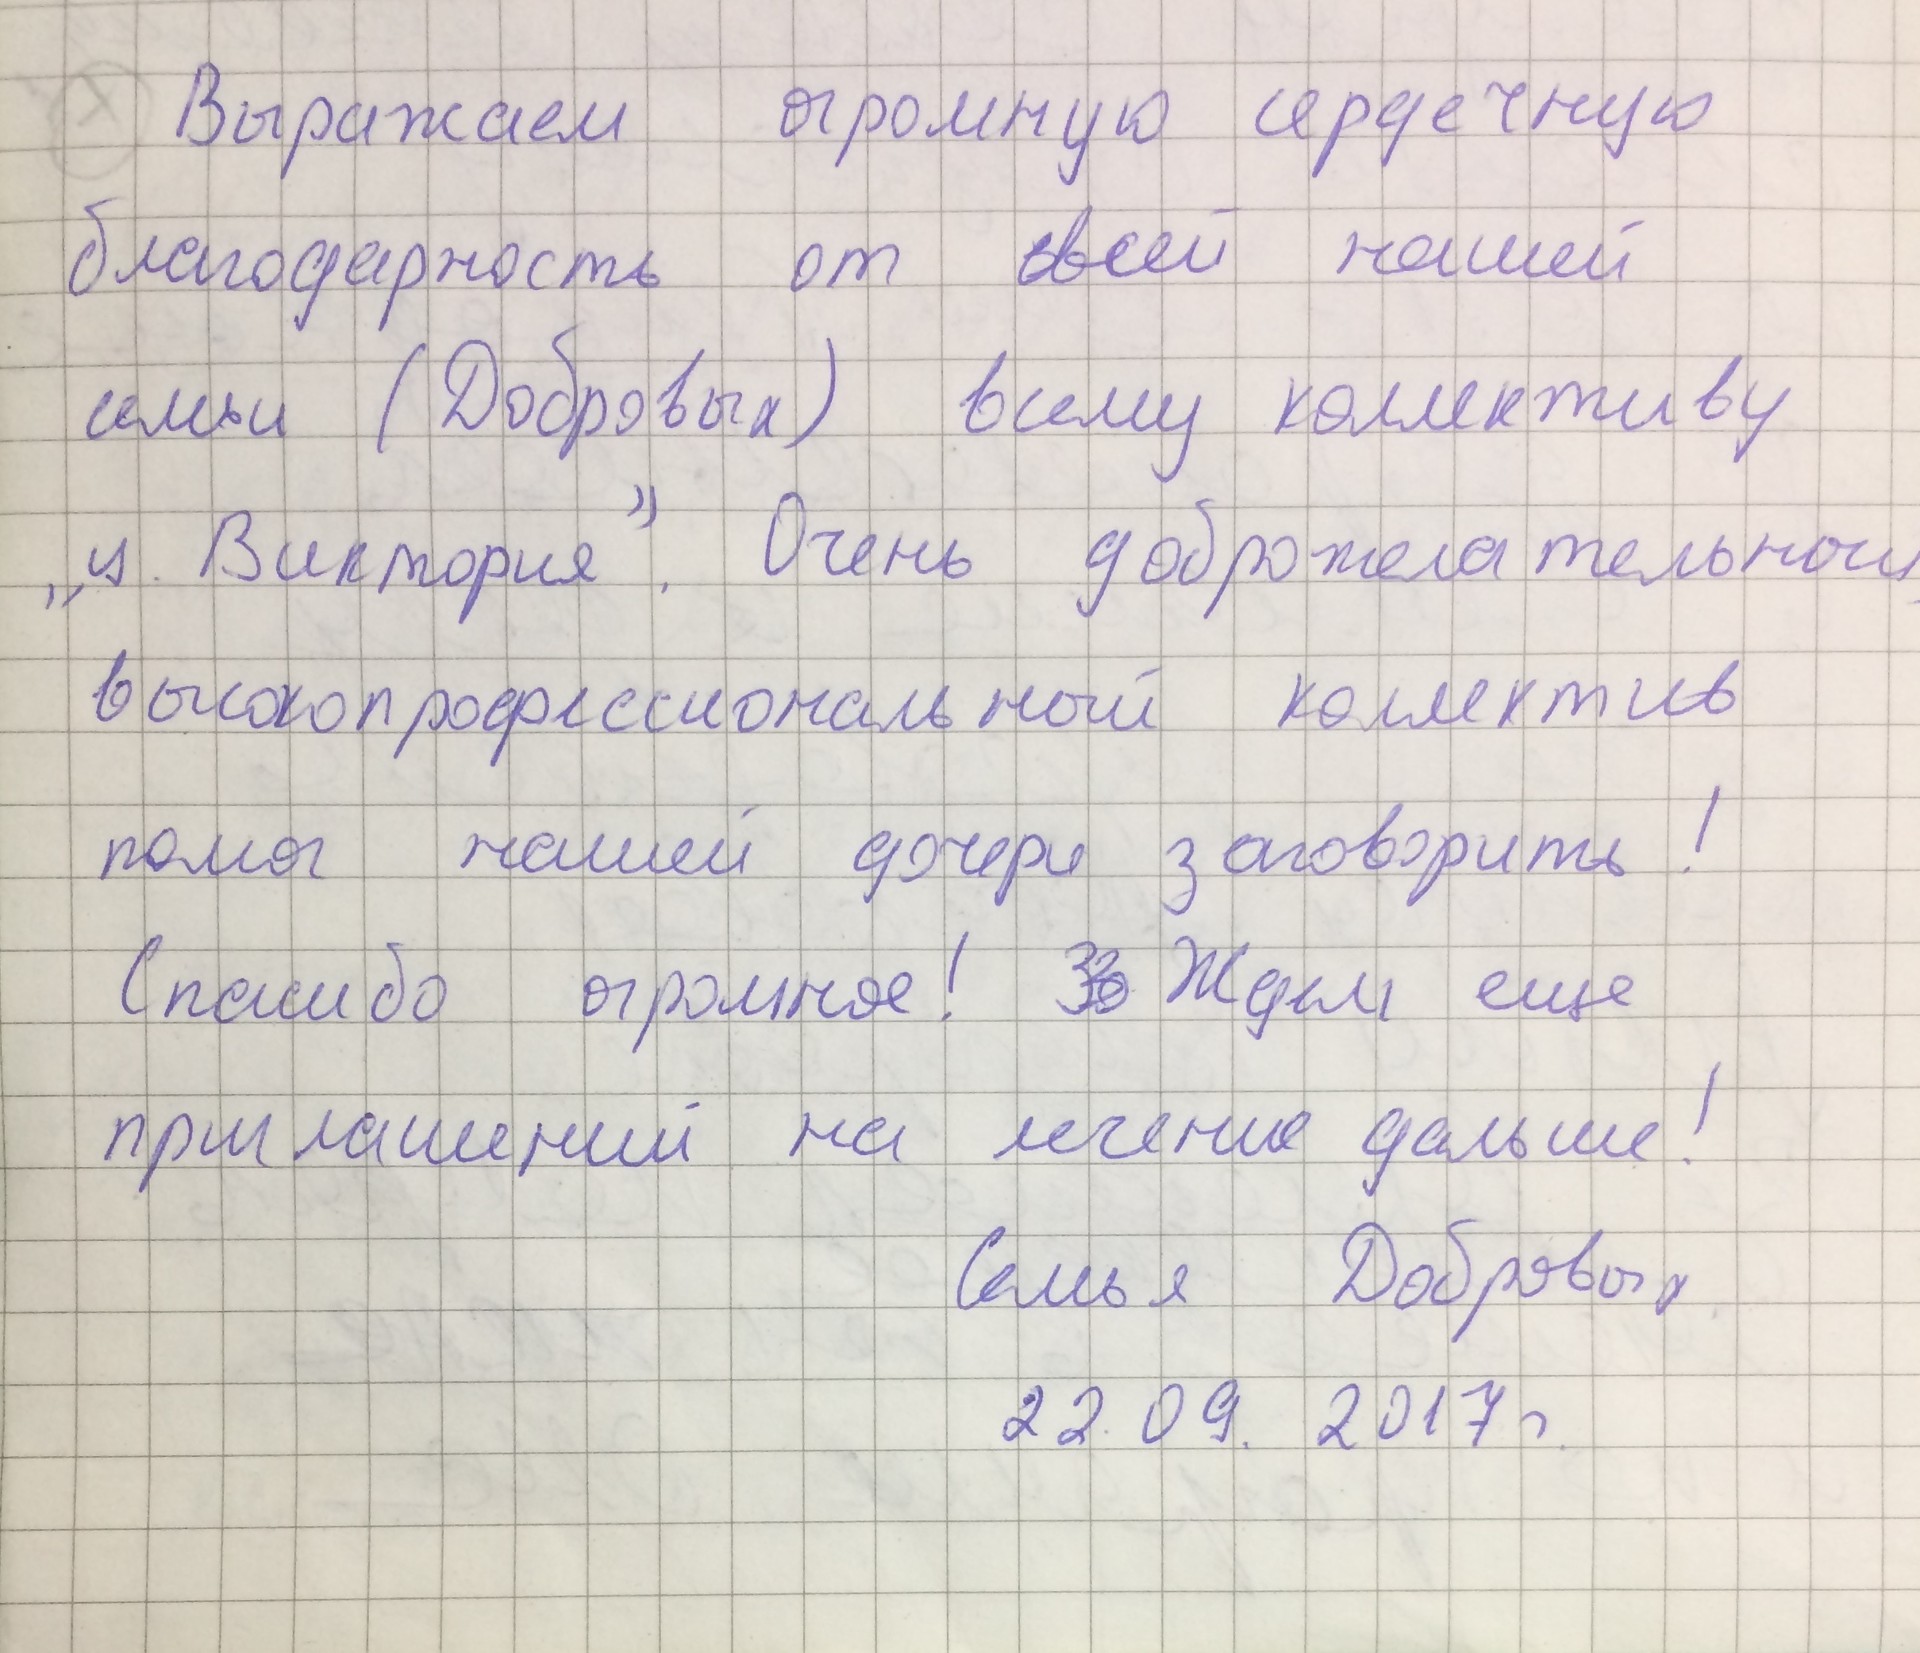 Выражаем огромную сердечную
благодарность от всей нашей
семьи (Добровых) всему коллективу
„ц. Виктория”. Очень доброжелательный,
высокопрофессиональный коллектив
помог нашей дочери заговорить!
Спасибо огромное! Ждем еще
приглашений на лечение дальше!
Семья Добровых
22.09.2017г.